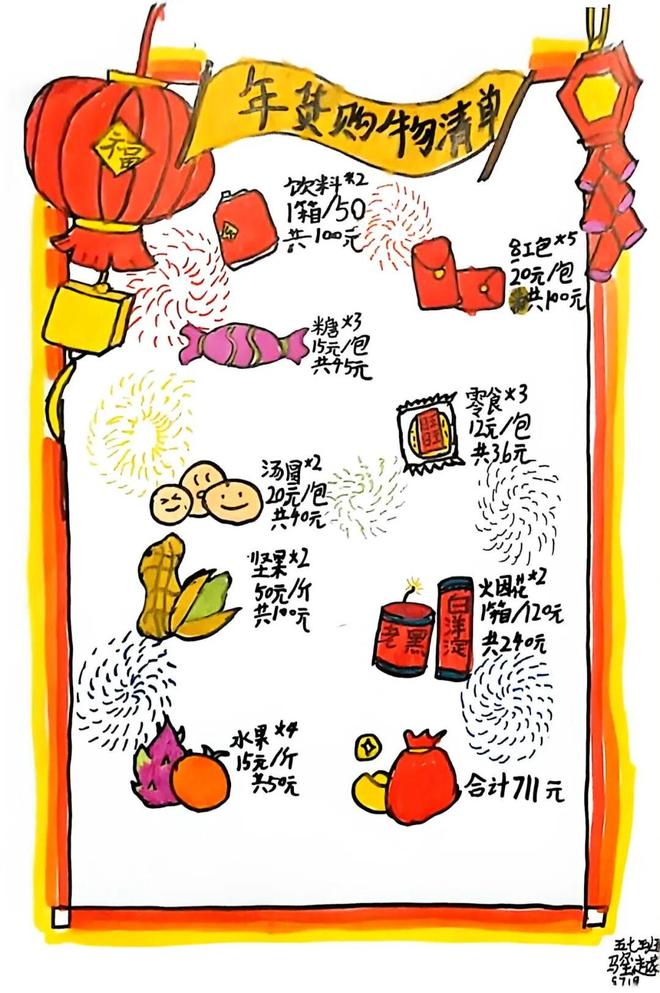 年货购物清单
福
饮料*2
1箱/50
共100元
红包*5
20元/包
共100元
糖*3
15元/包
共45元
零食*3
12元/包
共36元
旺
旺
汤圆*2
20元/包
共40元
坚果*2
50元/斤
共100元
火因花*2
1箱/120元
共240元
老黑
白洋淀
水果*4
15元/斤
共50元
合计711元
五七班